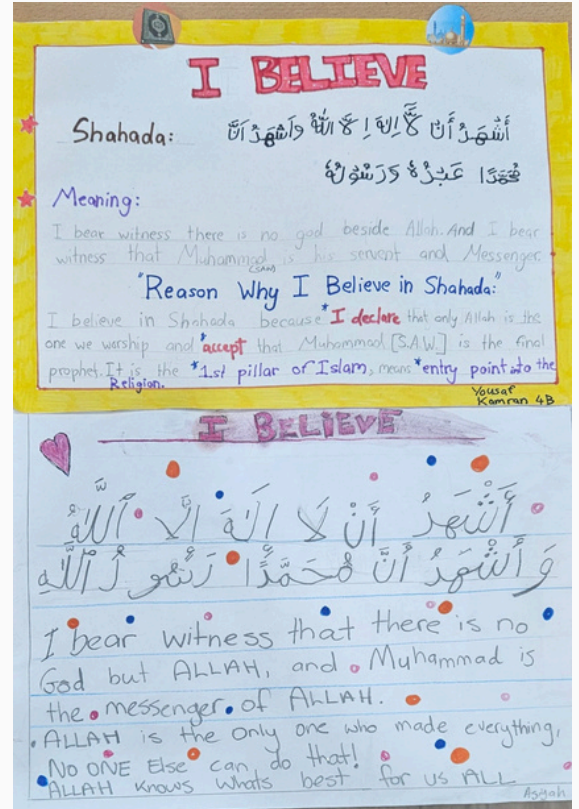 I BELIEVE
Shahada: أَشْهَدُ أَنْ لَّاإِلهَ إِلَّا اللهُ وَأَشْهَدُ أَنَّ
مُحَمَّدًا عَبْدُهُ وَرَسُولُهُ
Meaning:
I bear witness there is no god beside Allah. And I bear
witness that Muhammad is his servent and Messenger.
(SAW)
"Reason Why I Believe in Shahada:"
I believe in Shahada because *I declare that only Allah is the
one we worship and *accept that Muhammad [S.A.W.] is the final
prophet. It is the *1st pillar of Islam, means *entry point into the
Religion.
Yousaf
Kamran 4B
I BELIEVE
أَشْهَدُ أَنْ لَا إِلَهَ إِلَّا ٱللَّهُ
وَأَشْهَدُ أَنَّ مُحَمَّدًا رَسُولُ ٱللَّهِ
I bear witness that there is no
God but ALLAH, and Muhammad is
the messenger of ALLAH.
ALLAH is the only one who made everything,
NO ONE Else can do that!
ALLAH KNOWS WHATS best for us ALL
Asiyah